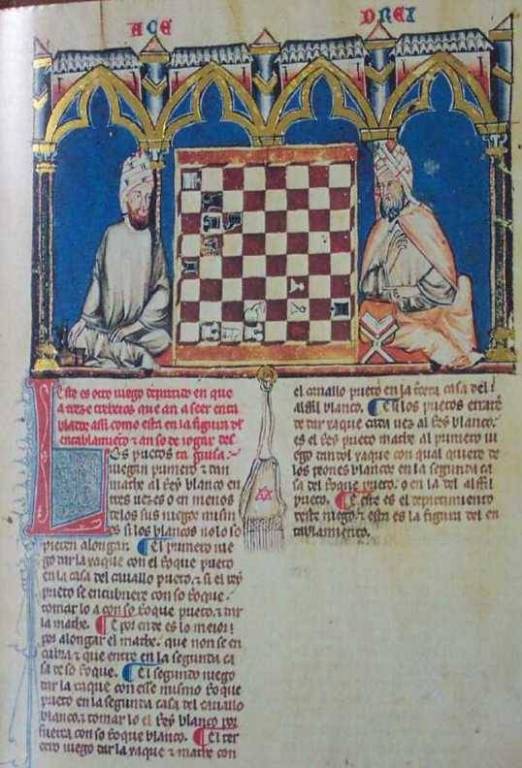 ACE DREX
Este es otro iuego departido en que
a treze trebeios que an a seer enta
blados assi como esta en la figura del
entablamiento & an se de iogar des
ta guisa.
Los prietos
iuegan primero & dan
mathe al Rey blanco en
tres uezes o en menos
delos sus iuegos mismos
si los blancos no lo so
pieren alongar. El primero iue
go dar la xaque con el Roque prieto
en la casa del cauallo prieto. & si el Rey
prieto se encubriere con so Roque.
tomar lo a con so Roque prieto. & dar
la mathe. E por ende es lo meior
por alongar el mathe. que non se en
cubra & que entre en la segunda ca
sa de so Roque. El segundo iuego
dar la xaque con esse mismo Roque
prieto en la segunda casa del cauallo
blanco. & tomar lo el Rey blanco por
fuerça con so Roque blanco. El ter
cero iuego dar la xaque & mathe con
el cauallo prieto en la tercera casa del
alffil blanco. E si los prietos errare
de dar xaque cada uez al Rey blanco.
es el Rey prieto mathe al primero iu
ego con xaque con qual quiere de
los peones blancos en la segunda ca
sa del Roque prieto. o en la del alffil
prieto. E este es el departimiento
deste iuego. & esta es la figura del en
tablamiento.